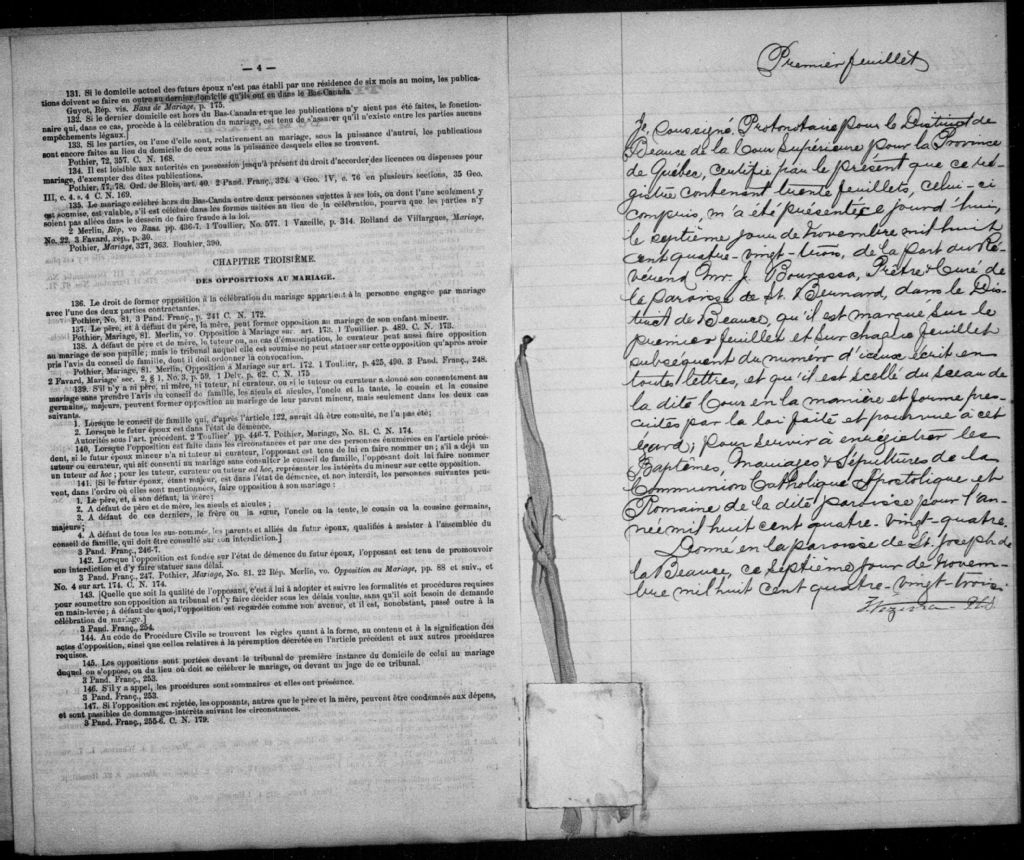 — 4 —
131. Si le domicile actuel des futurs époux n'est pas établi par une résidence de six mois au moins, les publica-
tions doivent se faire en outre au dernier domicile qu'ils ont eu dans le Bas-Canada.
Guyot, Rép. vis. Bans de Mariage, p. 175.
132. Si le dernier domicile est hors du Bas-Canada et que les publications n'y aient pas été faites, le fonction-
naire qui, dans ce cas, procède à la célébration du mariage, est tenu de s'assurer qu'il n'existe entre les parties aucuns
empêchements légaux.]
133. Si les parties, ou l'une d'elle sont, relativement au mariage, sous la puissance d'autrui, les publications
sont encore faites au lieu du domicile de ceux sous la puissance desquels elles se trouvent.
Pothier, 72, 357. C. N. 168.
134. Il est loisible aux autorités en possession jusqu'à présent du droit d'accorder les licences ou dispenses pour
mariage, d'exempter des dites publications.
Pothier, 77, 78. Ord. de Blois, art. 40. 2 Pand. Franç., 324. 4 Geo. IV, c. 76 en plusieurs sections, 35 Geo.
III, c. 4. s. 4 C. N. 169.
135. Le mariage célébré hors du Bas-Canda entre deux personnes sujettes à ses lois, ou dont l'une seulement y
est soumise, est valable, s'il est célébré dans les formes usitées au lieu de la célébration, pourvu que les parties n'y
soient pas allées dans le dessein de faire fraude à la loi.
2 Merlin, Rép, vo Bans. pp. 436-7. 1 Toullier, No. 577. 1 Vazeille, p. 314. Rolland de Villargues, Mariage,
No. 22. 3 Favard. rép., p. 30.
Pothier, Mariage, 327, 363. Bouhier, 390.
CHAPITRE TROISIÈME.
DES OPPOSITIONS AU MARIAGE.
136. Le droit de former opposition à la célébration du mariage appartient à la personne engagée par mariage
avec l'une des deux parties contractantes.
Pothier, No. 81, 3 Pand. Franç., p. 241 C. N. 172.
137. Le père, et à défaut du père, la mère, peut former opposition au mariage de son enfant mineur.
Pothier, Mariage, 81. Merlin, vo. Opposition à Mariage sur. art. 173. 1 Touillier. p. 489. C. N. 173.
138. A défaut de père et de mère, le tuteur ou, au cas d'émancipation, le curateur peut aussi faire opposition
au mariage de son pupille; mais le tribunal auquel elle est soumise ne peut statuer sur cette opposition qu'après avoir
pris l'avis du conseil de famille, dont il doit ordonner la convocation.
Pothier, Mariage, 81. Merlin, Opposition à Mariage sur art. 172. 1 Toullier, p. 425, 490. 3 Pand. Franç., 248.
2 Favard, Mariage' sec. 2, § 1, No. 3, p. 59. 1 Delv. p. 62. C. N. 175
139. S'il n'y a ni père, ni mère, ni tuteur, ni curateur, ou si le tuteur ou curateur a donné son consentement au
mariage sans prendre l'avis du conseil de famille, les aïeuls et aïeules, l'oncle et la tante, le cousin et la cousine
germains, majeurs, peuvent former opposition au mariage de leur parent mineur, mais seulement dans les deux cas
suivants.
1. Lorsque le conseil de famille qui, d'après l'article 122, aurait dû être consulté, ne l'a pas été;
2. Lorsque le futur époux est dans l'état de démence.
Autorités sous l'art. précédent. 2 Toullier' pp. 446-7. Pothier, Mariage, No. 81. C. N. 174.
140. Lorsque l'opposition est faite dans les circonstances et par une des personnes énumérées en l'article précé-
dent, si le futur époux mineur n'a ni tuteur ni curateur, l'opposant est tenu de lui en faire nommer un; s'il a déjà un
tuteur ou curateur, qui ait consenti au mariage sans consulter le conseil de famille, l'opposant doit lui faire nommer
un tuteur ad hoc; pour les tuteur, curateur ou tuteur ad hoc, représenter les intérêts du mineur sur cette opposition.
141. [Si le futur époux, étant majeur, est dans l'état de démence, et non interdit, les personnes suivantes peu-
vent, dans l'ordre où elles sont mentionnées, faire opposition à son mariage:
1. Le père, et, à son défaut, la mère;
2. A défaut de père et de mère, les aïeuls et aïeules;
3. A défaut de ces derniers, le frère ou la sœur, l'oncle ou la tente, le cousin ou la cousine germains,
majeurs;
4. A défaut de tous les sus-nommés, les parents et alliés du futur époux, qualifiés à assister à l'assemblée du
conseil de famille, qui doit être consulté sur son interdiction.]
3 Pand. Franç., 246-7.
142. Lorsque l'opposition est fondée sur l'état de démence du futur époux, l'opposant est tenu de promouvoir
son interdiction et d'y faire statuer sans délai.
3 Pand. Franç., 247. Pothier, Mariage, No. 81. 22 Rép. Merlin, vo. Opposition au Mariage, pp. 88 et suiv., et
No. 4 sur art. 174. C. N. 174.
143. [Quelle que soit la qualité de l'opposant, c'est à lui à adopter et suivre les formalités et procédures requises
pour soumettre son opposition au tribunal et l'y faire décider sous les délais voulus, sans qu'il soit besoin de demande
en main-levée; à défaut de quoi, l'opposition est regardée comme non avenue, et il est, nonobstant, passé outre à la
célébration du mariage.]
3 Pand. Franç., 254.
144. Au code de Procédure Civile se trouvent les règles quant à la forme, au contenu et à la signification des
actes d'opposition, ainsi que celles relatives à la péremption décrétée en l'article précédent et aux autres procédures
requises.
145. Les oppositions sont portées devant le tribunal de première instance du domicile de celui au mariage
duquel on s'oppose, ou du lieu où doit se célébrer le mariage, ou devant un juge de ce tribunal.
3 Pand. Franç., 253.
146. S'il y a appel, les procédures sont sommaires et elles ont préséance.
3 Pand. Franç., 253.
147. Si l'opposition est rejetée, les opposants, autres que le père et la mère, peuvent être condamnés aux dépens,
et sont passibles de dommages-intérêts suivant les circonstances.
3 Pand. Franç., 255-6. C. N. 179.
Premier feuillet
Je, Soussigné, Protonotaire pour le District de
Beauce de la Cour Supérieure pour la Province
de Québec, certifie par le présent que ce re-
gistre contenant trente feuillets, celui-ci
compris, m'a été présenté ce jourd'hui,
le septième jour de Novembre mil huit
cent quatre-vingt-trois, de la part du Ré-
vérend Mr. J. Bourassa, Prêtre & Curé de
la paroisse de St. Bernard, dans le Dis-
trict de Beauce, qu'il est marqué sur le
premier feuillet et sur chaque feuillet
subséquent du numéro d'iceux écrit en
toutes lettres, et qu'il est scellé du sceau de
la dite Cour en la manière et forme pres-
crites par la loi faite et pourvue à cet
égard; pour servir à enrégistrer les
Baptêmes, Mariages & Sépultures de la
Communion Catholique Apostolique et
Romaine de la dite paroisse pour l'an-
née mil huit cent quatre-vingt-quatre.
Donné en la paroisse de St. Joseph de
la Beauce, ce septième jour de Novem-
bre mil huit cent quatre-vingt-trois.